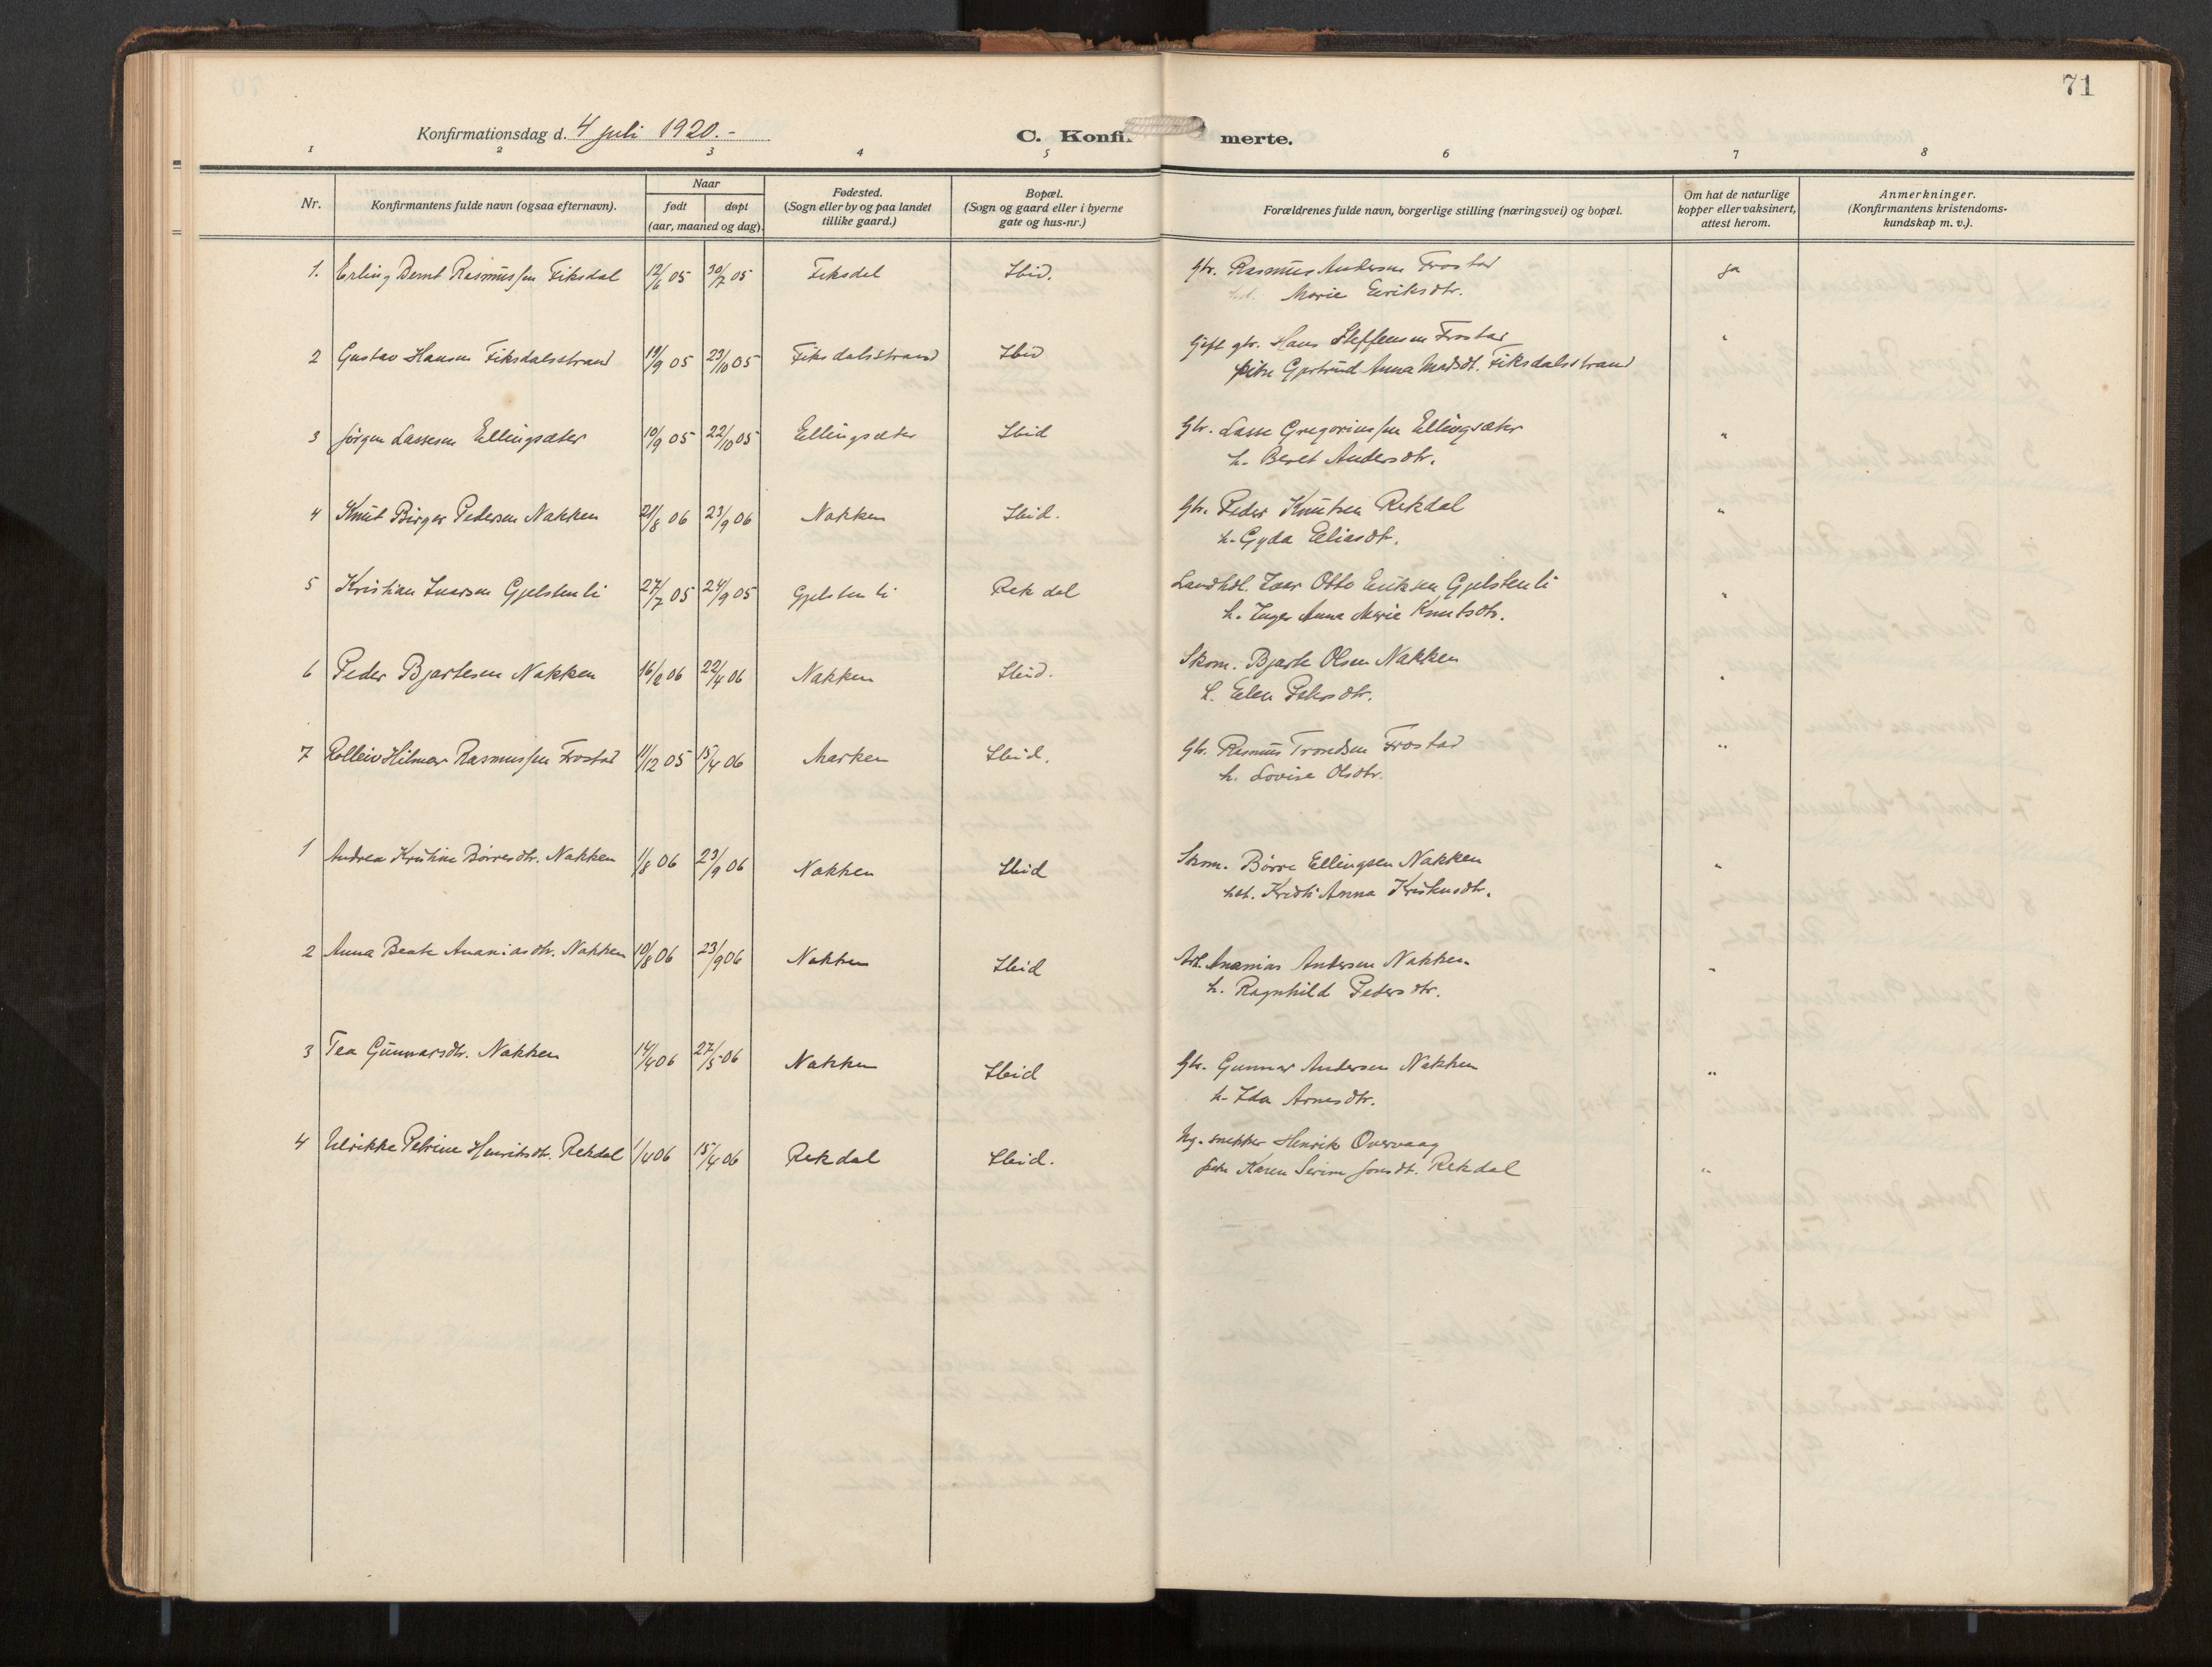 71
Konfirmationsdag d. 4 juli 1920.-
C. Konfi merte.
1 2 3 4 5 6 7 8
Nr.
Konfirmantens fulde navn (ogsaa efternavn).
Naar
født døpt
(aar, maaned og dag).
Fødested.
(Sogn eller by og paa landet
tillike gaard.)
Bopæl.
(Sogn og gaard eller i byerne
gate og hus-nr.)
Forældrenes fulde navn, borgerlige stilling (næringsvei) og bopæl.
Om hat de naturlige
kopper eller vaksinert,
attest herom.
Anmerkninger.
(Konfirmantens kristendoms-
kundskap m. v.).
1. Erling Bernt Rasmussen Fiksdal 12/6 05 30/7 05 Fiksdal Ibid. Gbr. Rasmus Andersen Frostad ja
Marie Eriksdtr.
2 Gustav Hansen Fiksdalsstrand 19/9 05 29/10 05 Fiksdalsstrand Ibid Gift gbr. Hans Steffensen Frostad "
pike Gjertrud Anna Madsdt. Fiksdalsstrand
3 Jørgen Lassesen Ellingsæter 10/9 05 22/10 05 Ellingsæter Ibid Gbr. Lasse Gregoriussen Ellingsæter "
h. Beret Andersdtr.
4 Knut Birger Pedersen Nakken 21/8 06 23/9 06 Nakken Ibid. Gbr. Peder Knutsen Rekdal "
h. Gyda Eliasdt.
5 Kristian Ivarsen Gjelstenli 27/7 05 24/9 05 Gjelstenli Rekdal Landhdl. Ivar Otto Eriksen Gjelstenli "
h. Inger Anna Marie Knutsdtr.
6 Peder Bjartesen Nakken 16/2 06 22/4 06 Nakken Ibid. Skom. Bjarte Olsen Nakken "
h. Elen Pedersdtr.
7 Rolleiv Hilmar Rasmussen Frostad 11/12 05 15/4 06 Marken Ibid. Gbr. Rasmus Trondsen Frostad "
h. Lovise Olsdtr.
1 Andrea Kristine Børresdtr. Nakken 1/8 06 23/9 06 Nakken Ibid Skom. Børre Ellingsen Nakken "
hst. Kristi Anna Kristensdtr.
2 Anna Beate Ananiasdtr. Nakken 10/8 06 23/9 06 Nakken Ibid Arb. Ananias Andersen Nakken "
h. Ragnhild Pedersdtr.
3 Tea Gunnarsdtr. Nakken 14/4 06 27/5 06 Nakken Ibid Gbr. Gunnar Andersen Nakken "
h. Ida Arnesdtr.
4 Ulrikke Petrine Henriksdtr. Rekdal 1/4 06 15/4 06 Rekdal Ibid. Ug. snekker Henrik Overvaag "
pike Karen Serine Jonsdt. Rekdal